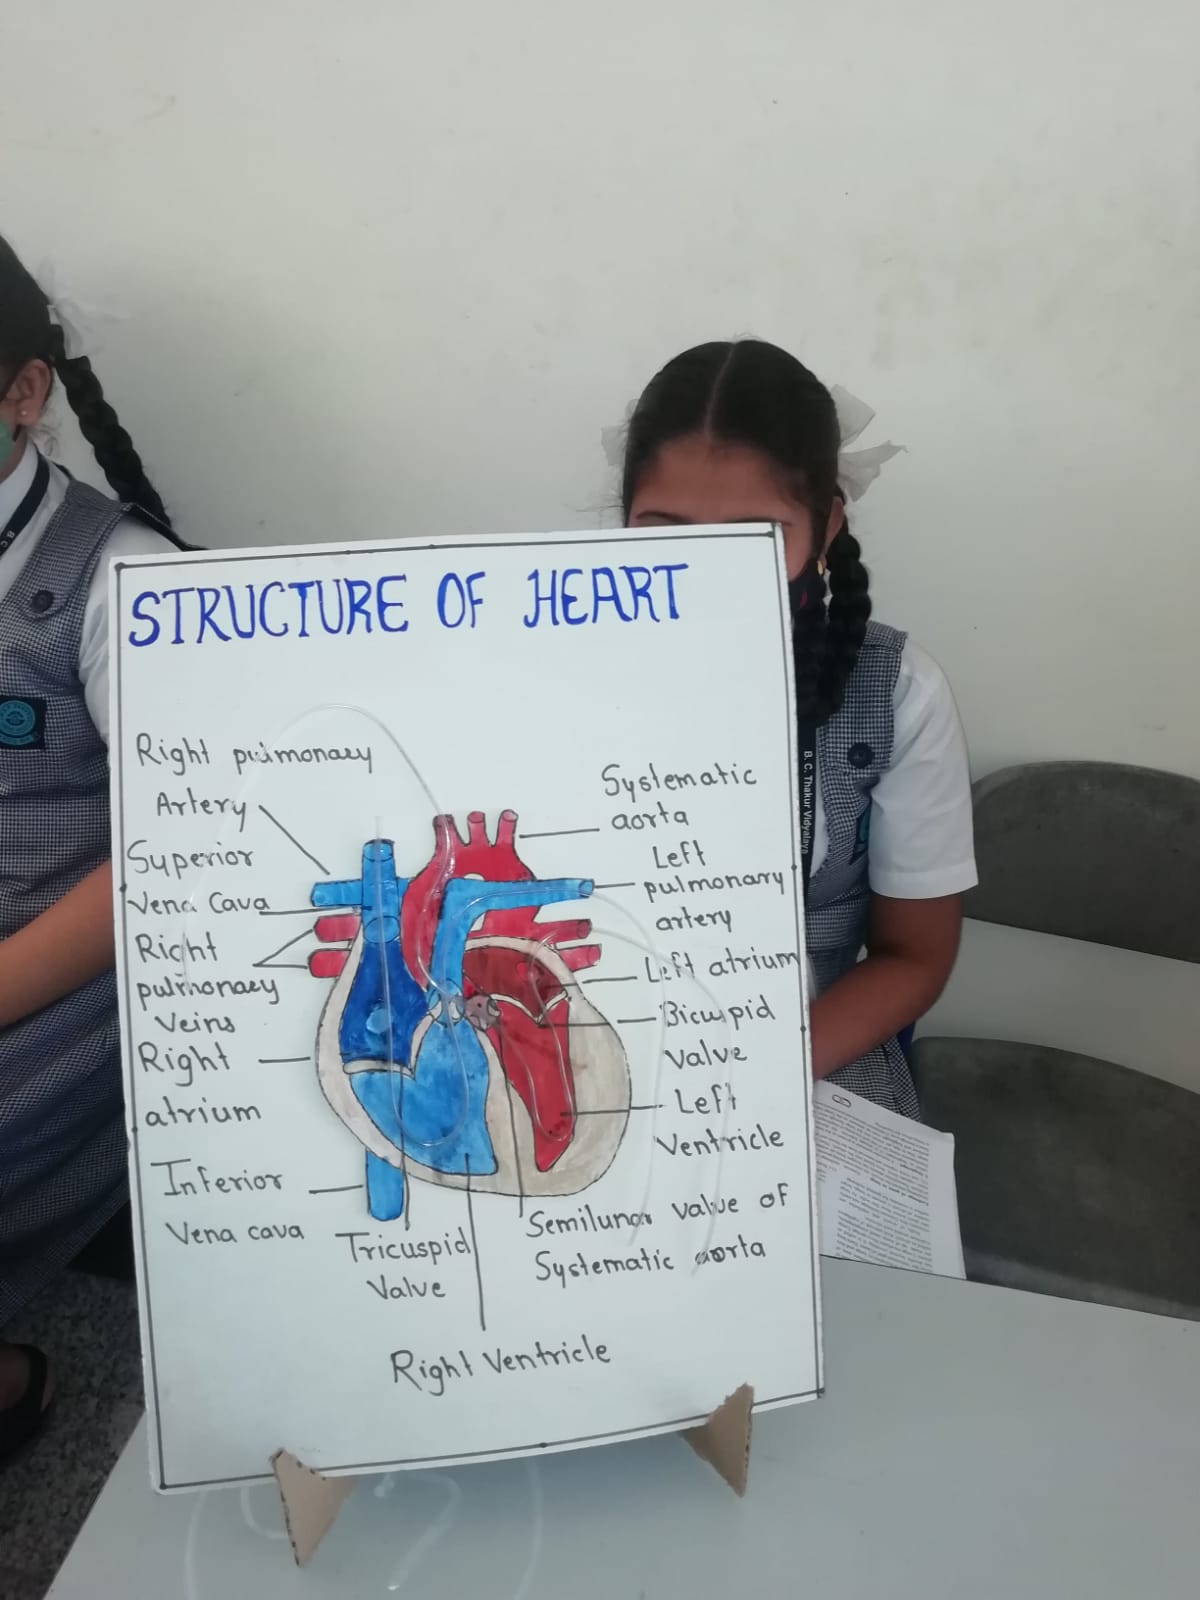 STRUCTURE OF HEART
Right pulmonary
Artery
Superior
Vena Cava
Right
pulmonary
Veins
Right
atrium
Inferior
Vena cava
Tricuspid
Valve
Right Ventricle
Systematic
aorta
Left
pulmonary
artery
Left atrium
Bicuspid
Valve
Left
Ventricle
Semilunar valve of
Systematic aorta
B. C. Thakur Vidyalaya
B. C.